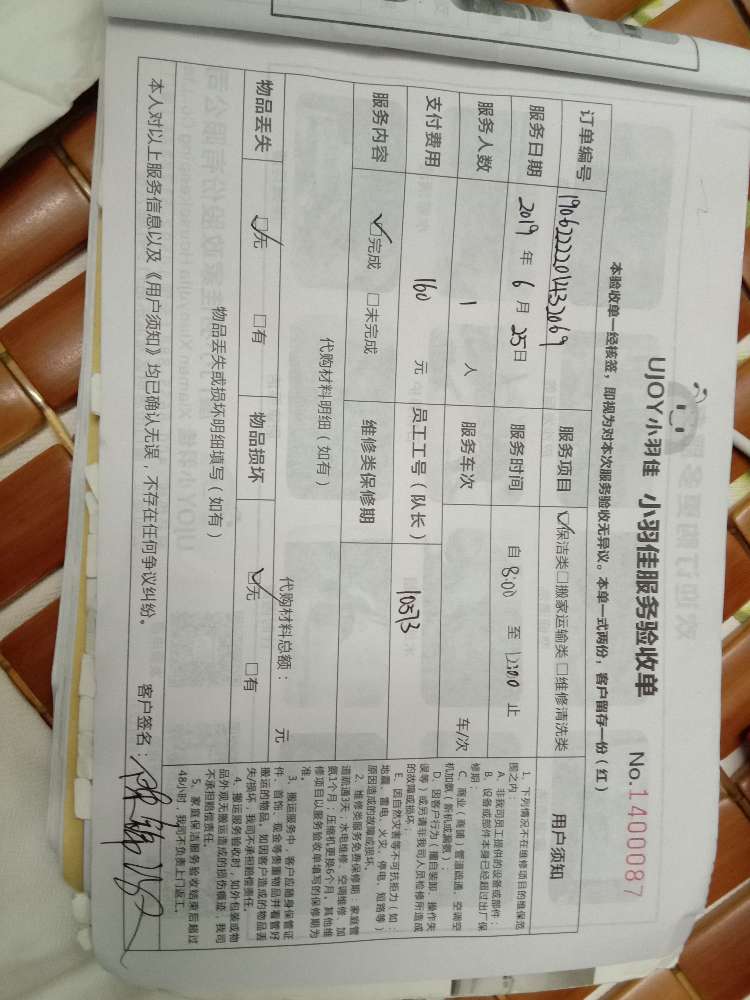 UJOY小羽佳 小羽佳服务验收单 No.1400087
本验收单一经核签，即视为对本次服务验收无异议。本单一式两份，客户留存一份（红）
订单编号 190622220143269 服务项目 ☑保洁类□搬家运输类□维修清洗类 用户须知
服务日期 2019 年 6 月 25日 服务时间 自 8:00 至 12:00 止
服务人数 1 人 服务车次 车/次
支付费用 160 元 员工工号（队长） 10573
服务内容 ☑完成 □未完成 维修类保修期
代购材料明细（如有）
代购材料总额： 元
物品丢失 ☑无 □有 物品损坏 ☑无 □有
物品丢失或损坏明细填写（如有）
本人对以上服务信息以及《用户须知》均已确认无误，不存在任何争议纠纷。 客户签名：
1、下列情况不在维修项目的维保范
围之内：
A、非我司员工提供的设备或部件；
B、设备或部件本身已经超过出厂保
修期；
C、商业（商铺）管道疏通、空调空
机加氨（新机或漏氨）；
D、因客户行为（擅自装卸、操作失
误等）或另请非我司人员检修所造成
的故障或损坏；
E、因自然灾害等不可抗拒力（如：
地震、雷电、火灾、停电、短路等）
原因造成的故障或损坏。
2、维修类服务免费保修期：家庭管
道疏通3天；水电维修、空调维修、加
氨1个月；压缩机更换6个月，其他维
修项目以服务验收单填写的保修期为
准。
3、搬运服务中，客户应随身保管证
件、首饰、现金等贵重物品并看管好
搬运的物品。如因客户造成的物品丢
失/损坏，我司不承担赔偿责任。
4、搬运服务验收时，如外包装或物
品外观无搬运造成的损伤痕迹，我司
不承担赔偿责任。
5、家庭保洁服务验收结束后超过
48小时，我司不负责上门返工。